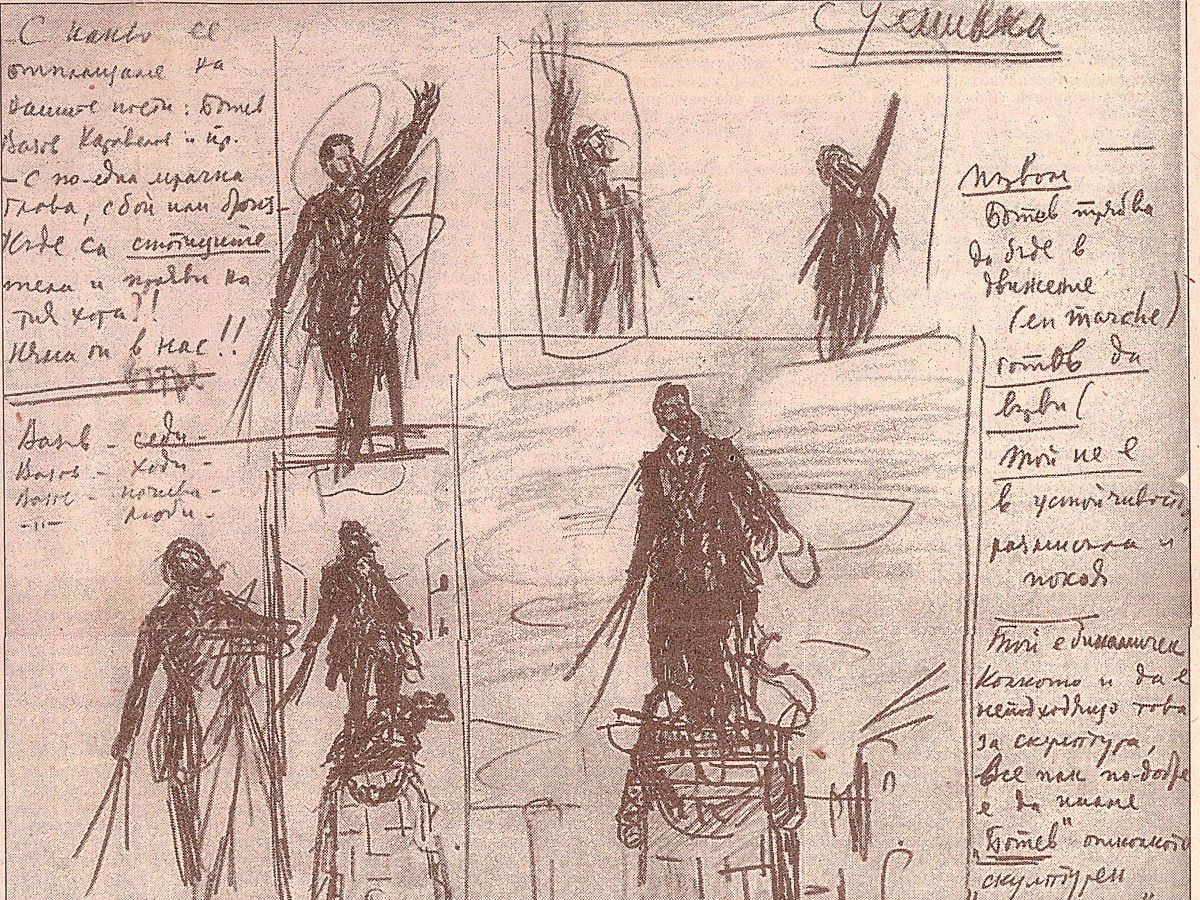 С какво се
отплащаме на
нашите поети: Ботев
Вазов Каравелов и пр.
– С по една мрачна
глава, с бои или бронз –
Къде са стоящите
тела и прояви на
тия хора?!
Няма ги в нас!!
Вазов – седи –
Вазов – ходи –
Вазов – почива –
–"– люди –
с усмивка
Извод
Ботев трябва
да бъде в
движение
(en marche)
готов да
върви (
Той не е
в устойчивост,
размисъл и
покой
Той е динамичен
Колкото и да е
неподходящо това
за скулптура,
все пак по-добре
е да имаме
"Ботев" отколкото
"скулптурен